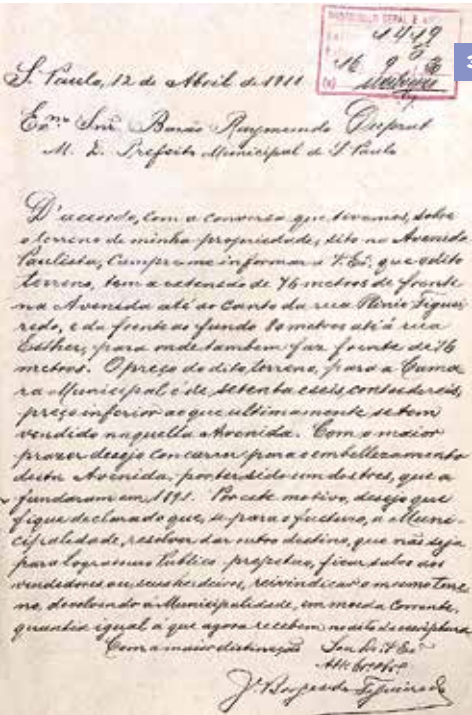 PROTOCOLLO GERAL E
1419
16 9
S. Paulo, 12 de Abril de 1911
Exmo. Snr. Barão Raymundo Duprat
M. D. Prefeito Municipal de S. Paulo
D'accordo, com a conversa que tivemos, sobre
o terreno de minha propriedade, sito na Avenida
Paulista, cumpre-me informar a V. Exa. que o dito
terreno, tem a extensão de 76 metros de frente
na Avenida até ao canto da rua Plinio Figuei-
redo, e da frente ao fundo 80 metros até á rua
Esther, para onde tambem faz frente de 76
metros. O preço do dito terreno, para a Cama-
ra Municipal é de, setenta e seis, contos de reis,
preço inferior ao que ultimamente se tem
vendido naquella Avenida. Com o maior
prazer desejo concorrer para o embellezamento
desta Avenida, por ter sido um dos tres, que a
fundaram em 1891. Por este motivo, desejo que
fique declarado que, se para o futuro, a Muni-
cipalidade, resolver dar outro destino, que não seja
para logradouro Publico, ficar salvo aos
vendedores ou, seus herdeiros, reivindicar o mesmo terre-
no, devolvendo á Municipalidade, em moeda corrente,
quantia igual á que agora recebem no acto da escriptura
Com a maior distincção Sou de V. Exa.
J. Borges de Figueiredo
3